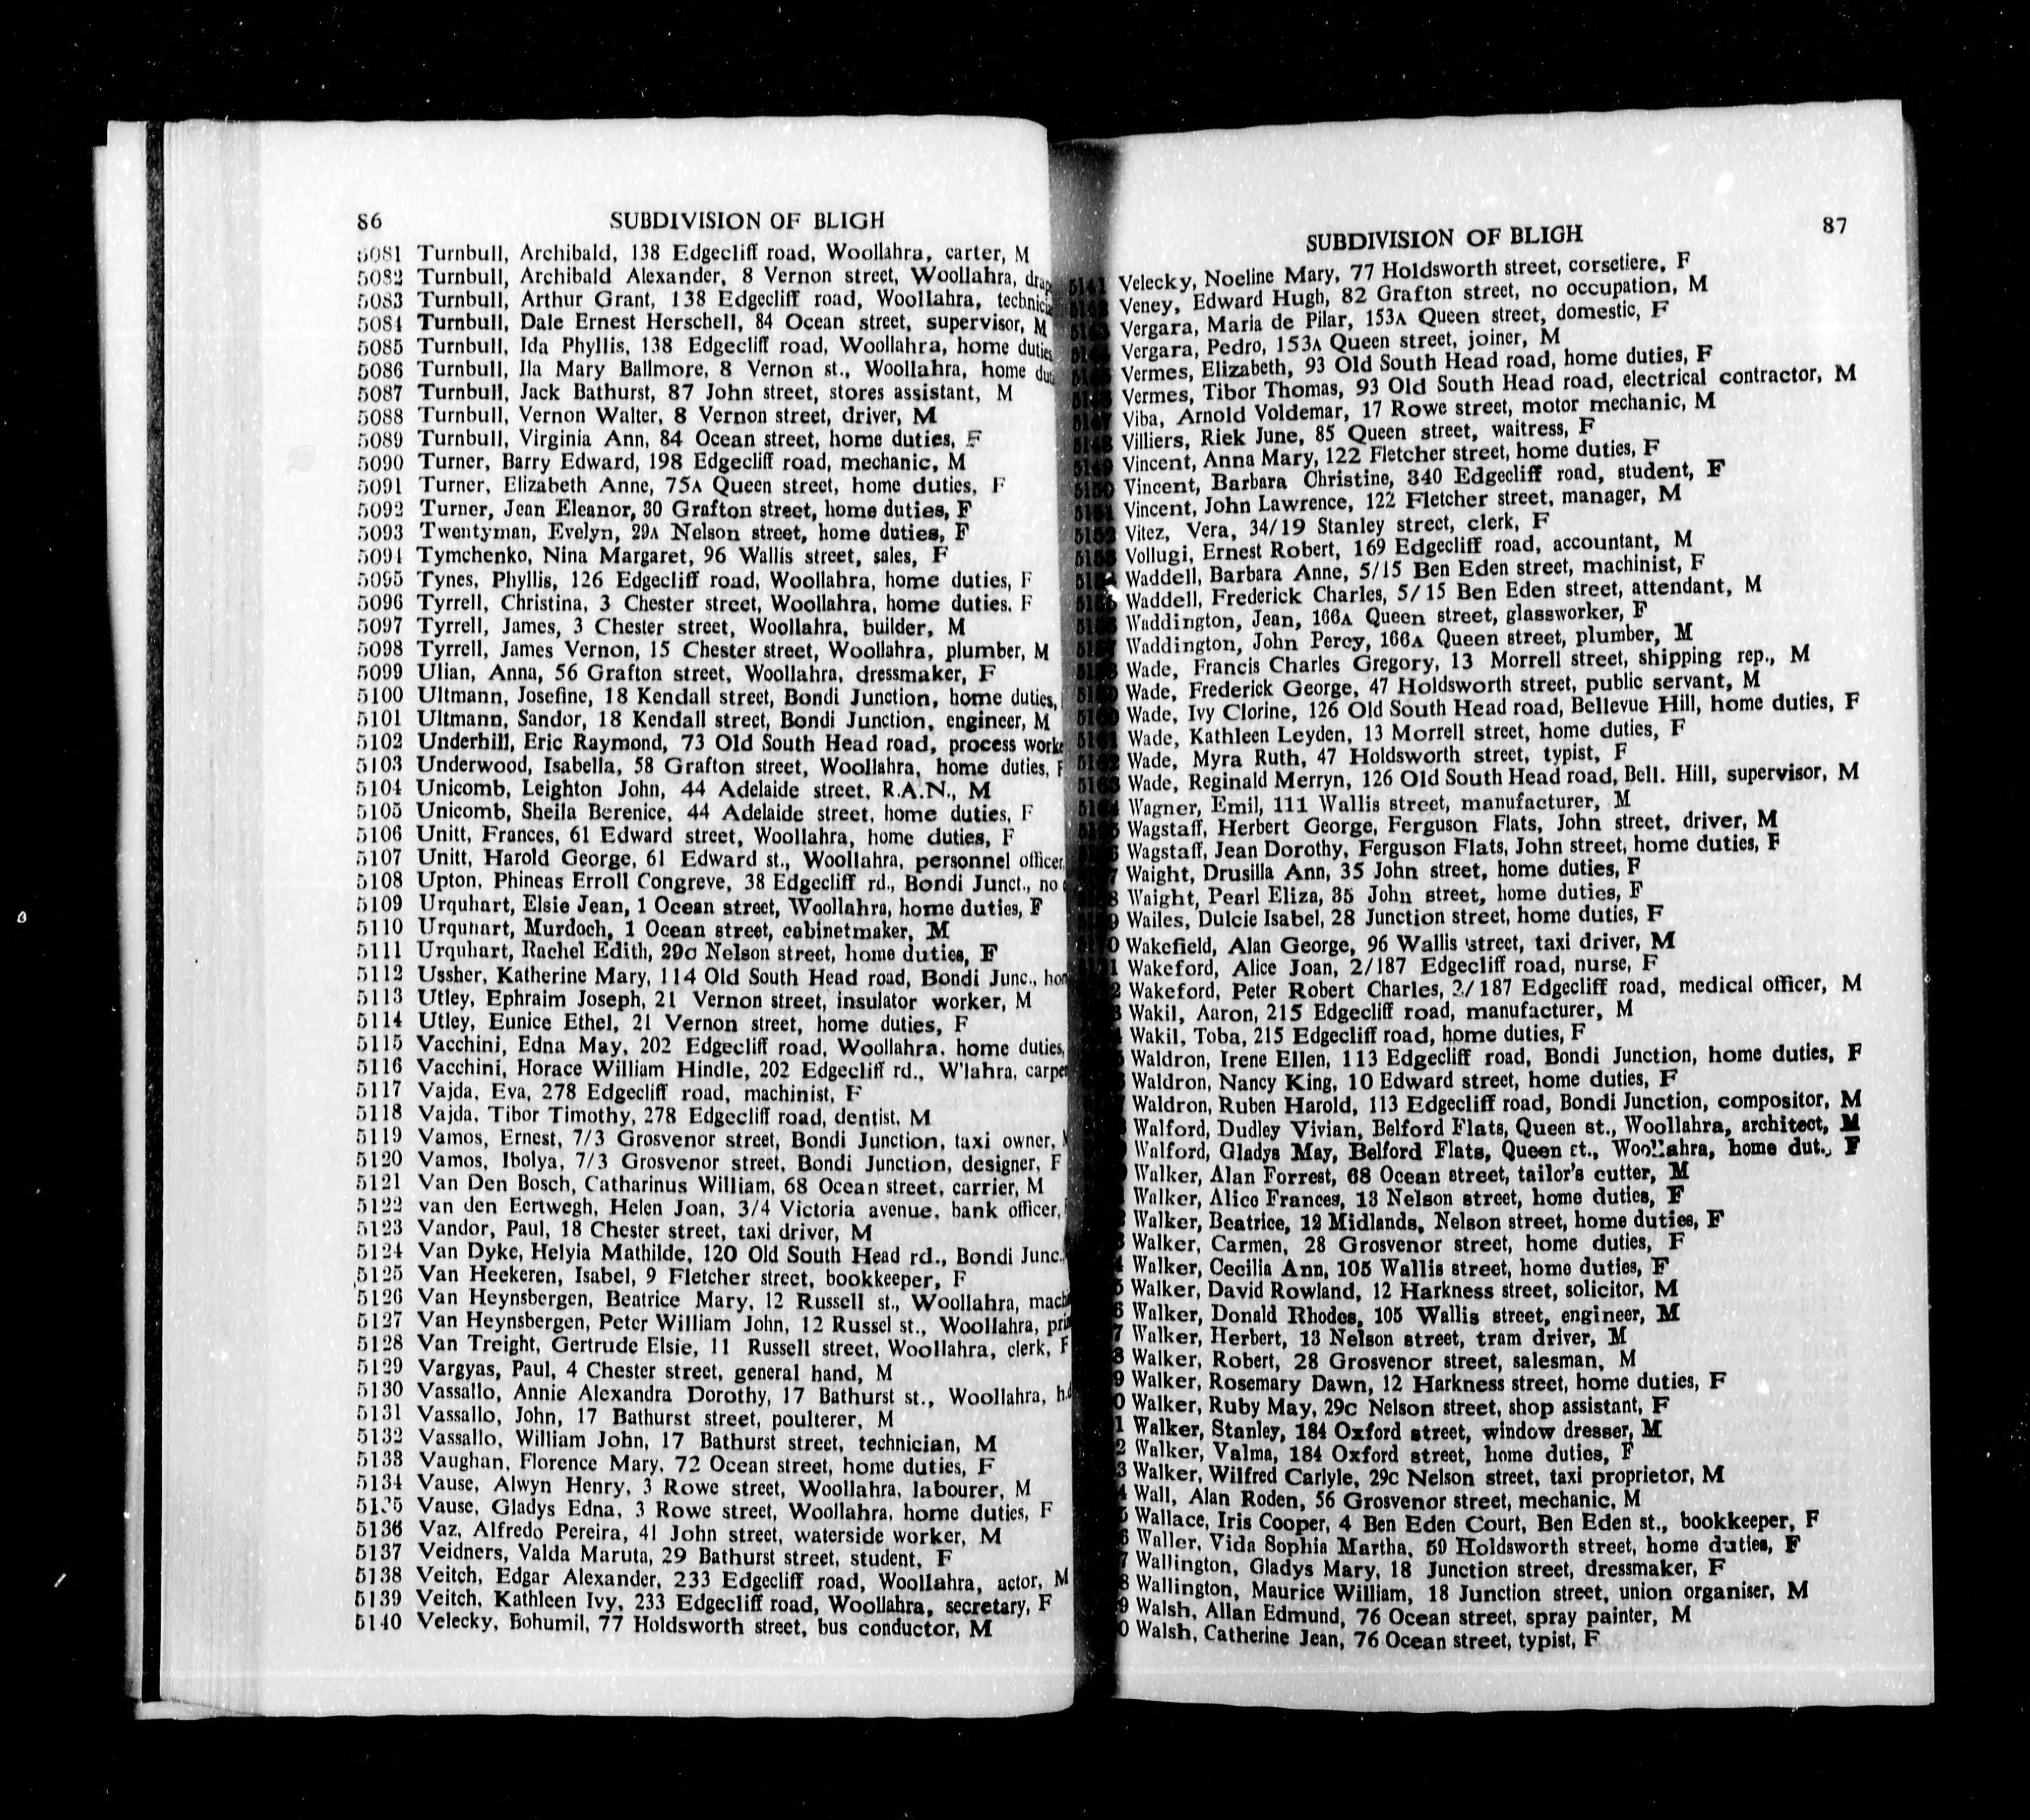 86 SUBDIVISION OF BLIGH
5081 Turnbull, Archibald, 138 Edgecliff road, Woollahra, carter, M
5082 Turnbull, Archibald Alexander, 8 Vernon street, Woollahra,
5083 Turnbull, Arthur Grant, 138 Edgecliff road, Woollahra,
5084 Turnbull, Dale Ernest Herschell, 84 Ocean street, supervisor, M
5085 Turnbull, Ida Phyllis, 138 Edgecliff road, Woollahra, home
5086 Turnbull, Ila Mary Ballmore, 8 Vernon st., Woollahra, home
5087 Turnbull, Jack Bathurst, 87 John street, stores assistant, M
5088 Turnbull, Vernon Walter, 8 Vernon street, driver, M
5089 Turnbull, Virginia Ann, 84 Ocean street, home duties, F
5090 Turner, Barry Edward, 198 Edgecliff road, mechanic, M
5091 Turner, Elizabeth Anne, 75A Queen street, home duties, F
5092 Turner, Jean Eleanor, 30 Grafton street, home duties, F
5093 Twentyman, Evelyn, 29A Nelson street, home duties, F
5094 Tymchenko, Nina Margaret, 96 Wallis street, sales, F
5095 Tynes, Phyllis, 126 Edgecliff road, Woollahra, home duties, F
5096 Tyrrell, Christina, 3 Chester street, Woollahra, home duties, F
5097 Tyrrell, James, 3 Chester street, Woollahra, builder, M
5098 Tyrrell, James Vernon, 15 Chester street, Woollahra, plumber, M
5099 Ulian, Anna, 56 Grafton street, Woollahra, dressmaker, F
5100 Ultmann, Josefine, 18 Kendall street, Bondi Junction, home duties,
5101 Ultmann, Sandor, 18 Kendall street, Bondi Junction, engineer, M
5102 Underhill, Eric Raymond, 73 Old South Head road, process
5103 Underwood, Isabella, 58 Grafton street, Woollahra, home duties, F
5104 Unicomb, Leighton John, 44 Adelaide street, R.A.N., M
5105 Unicomb, Sheila Berenice, 44 Adelaide street, home duties, F
5106 Unitt, Frances, 61 Edward street, Woollahra, home duties, F
5107 Unitt, Harold George, 61 Edward st., Woollahra, personnel officer,
5108 Upton, Phineas Erroll Congreve, 38 Edgecliff rd., Bondi Junct., no
5109 Urquhart, Elsie Jean, 1 Ocean street, Woollahra, home duties, F
5110 Urquhart, Murdoch, 1 Ocean street, cabinetmaker, M
5111 Urquhart, Rachel Edith, 29C Nelson street, home duties, F
5112 Ussher, Katherine Mary, 114 Old South Head road, Bondi Junc.,
5113 Utley, Ephraim Joseph, 21 Vernon street, insulator worker, M
5114 Utley, Eunice Ethel, 21 Vernon street, home duties, F
5115 Vacchini, Edna May, 202 Edgecliff road, Woollahra, home duties,
5116 Vacchini, Horace William Hindle, 202 Edgecliff rd., W'lahra,
5117 Vajda, Eva, 278 Edgecliff road, machinist, F
5118 Vajda, Tibor Timothy, 278 Edgecliff road, dentist, M
5119 Vamos, Ernest, 7/3 Grosvenor street, Bondi Junction, taxi owner,
5120 Vamos, Ibolya, 7/3 Grosvenor street, Bondi Junction, designer, F
5121 Van Den Bosch, Catharinus William, 68 Ocean street, carrier, M
5122 van den Eertwegh, Helen Joan, 3/4 Victoria avenue, bank officer,
5123 Vandor, Paul, 18 Chester street, taxi driver, M
5124 Van Dyke, Helyia Mathilde, 120 Old South Head rd., Bondi Junc.
5125 Van Heekeren, Isabel, 9 Fletcher street, bookkeeper, F
5126 Van Heynsbergen, Beatrice Mary, 12 Russell st., Woollahra,
5127 Van Heynsbergen, Peter William John, 12 Russel st., Woollahra,
5128 Van Treight, Gertrude Elsie, 11 Russell street, Woollahra, clerk, F
5129 Vargyas, Paul, 4 Chester street, general hand, M
5130 Vassallo, Annie Alexandra Dorothy, 17 Bathurst st., Woollahra,
5131 Vassallo, John, 17 Bathurst street, poulterer, M
5132 Vassallo, William John, 17 Bathurst street, technician, M
5133 Vaughan, Florence Mary, 72 Ocean street, home duties, F
5134 Vause, Alwyn Henry, 3 Rowe street, Woollahra, labourer, M
5135 Vause, Gladys Edna, 3 Rowe street, Woollahra, home duties, F
5136 Vaz, Alfredo Pereira, 41 John street, waterside worker, M
5137 Veidners, Valda Maruta, 29 Bathurst street, student, F
5138 Veitch, Edgar Alexander, 233 Edgecliff road, Woollahra, actor, M
5139 Veitch, Kathleen Ivy, 233 Edgecliff road, Woollahra, secretary, F
5140 Velecky, Bohumil, 77 Holdsworth street, bus conductor, M
SUBDIVISION OF BLIGH 87
Velecky, Noeline Mary, 77 Holdsworth street, corsetiere, F
Veney, Edward Hugh, 82 Grafton street, no occupation, M
Vergara, Maria de Pilar, 153A Queen street, domestic, F
Vergara, Pedro, 153A Queen street, joiner, M
Vermes, Elizabeth, 93 Old South Head road, home duties, F
Vermes, Tibor Thomas, 93 Old South Head road, electrical contractor, M
Viba, Arnold Voldemar, 17 Rowe street, motor mechanic, M
Villiers, Riek June, 85 Queen street, waitress, F
Vincent, Anna Mary, 122 Fletcher street, home duties, F
Vincent, Barbara Christine, 340 Edgecliff road, student, F
Vincent, John Lawrence, 122 Fletcher street, manager, M
Vitez, Vera, 34/19 Stanley street, clerk, F
Vollugi, Ernest Robert, 169 Edgecliff road, accountant, M
Waddell, Barbara Anne, 5/15 Ben Eden street, machinist, F
Waddell, Frederick Charles, 5/15 Ben Eden street, attendant, M
Waddington, Jean, 166A Queen street, glassworker, F
Waddington, John Percy, 166A Queen street, plumber, M
Wade, Francis Charles Gregory, 13 Morrell street, shipping rep., M
Wade, Frederick George, 47 Holdsworth street, public servant, M
Wade, Ivy Clorine, 126 Old South Head road, Bellevue Hill, home duties, F
Wade, Kathleen Leyden, 13 Morrell street, home duties, F
Wade, Myra Ruth, 47 Holdsworth street, typist, F
Wade, Reginald Merryn, 126 Old South Head road, Bell. Hill, supervisor, M
Wagner, Emil, 111 Wallis street, manufacturer, M
Wagstaff, Herbert George, Ferguson Flats, John street, driver, M
Wagstaff, Jean Dorothy, Ferguson Flats, John street, home duties, F
Waight, Drusilla Ann, 35 John street, home duties, F
Waight, Pearl Eliza, 35 John street, home duties, F
Wailes, Dulcie Isabel, 28 Junction street, home duties, F
Wakefield, Alan George, 96 Wallis street, taxi driver, M
Wakeford, Alice Joan, 2/187 Edgecliff road, nurse, F
Wakeford, Peter Robert Charles, 2/187 Edgecliff road, medical officer, M
Wakil, Aaron, 215 Edgecliff road, manufacturer, M
Wakil, Toba, 215 Edgecliff road, home duties, F
Waldron, Irene Ellen, 113 Edgecliff road, Bondi Junction, home duties, F
Waldron, Nancy King, 10 Edward street, home duties, F
Waldron, Ruben Harold, 113 Edgecliff road, Bondi Junction, compositor, M
Walford, Dudley Vivian, Belford Flats, Queen st., Woollahra, architect, M
Walford, Gladys May, Belford Flats, Queen st., Woollahra, home dut., F
Walker, Alan Forrest, 68 Ocean street, tailor's cutter, M
Walker, Alice Frances, 13 Nelson street, home duties, F
Walker, Beatrice, 12 Midlands, Nelson street, home duties, F
Walker, Carmen, 28 Grosvenor street, home duties, F
Walker, Cecilia Ann, 105 Wallis street, home duties, F
Walker, David Rowland, 12 Harkness street, solicitor, M
Walker, Donald Rhodes, 105 Wallis street, engineer, M
Walker, Herbert, 13 Nelson street, tram driver, M
Walker, Robert, 28 Grosvenor street, salesman, M
Walker, Rosemary Dawn, 12 Harkness street, home duties, F
Walker, Ruby May, 29C Nelson street, shop assistant, F
Walker, Stanley, 184 Oxford street, window dresser, M
Walker, Valma, 184 Oxford street, home duties, F
Walker, Wilfred Carlyle, 29C Nelson street, taxi proprietor, M
Wall, Alan Roden, 56 Grosvenor street, mechanic, M
Wallace, Iris Cooper, 4 Ben Eden Court, Ben Eden st., bookkeeper, F
Waller, Vida Sophia Martha, 50 Holdsworth street, home duties, F
Wallington, Gladys Mary, 18 Junction street, dressmaker, F
Wallington, Maurice William, 18 Junction street, union organiser, M
Walsh, Allan Edmund, 76 Ocean street, spray painter, M
Walsh, Catherine Jean, 76 Ocean street, typist, F